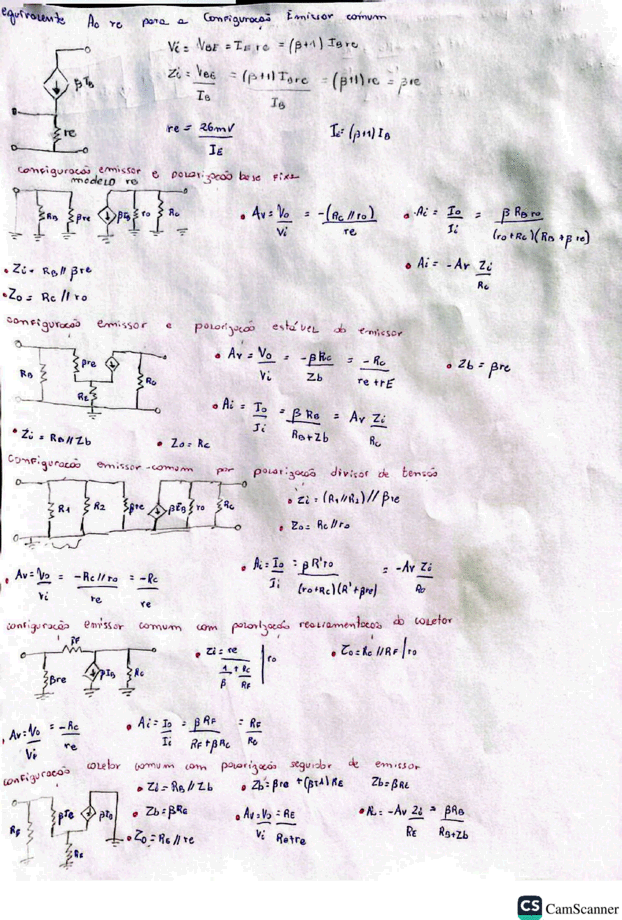 equivalente Ao re para a Configuração Emissor comum
Vi = VBE = IE re = (β+1) IB re
Zi = VBE/IB = (β+1) IB re/IB = (β+1) re = βre
βIB
re
re = 26mV/IE
IE = (β+1) IB
configuração emissor e polarização base Fixa
modelo re
RB βre βIB ro RC
• Av = Vo/Vi = -(RC // ro)/re
• Ai = Io/Ii = β RB ro/(ro+RC)(RB+βre)
• Ai = -Av Zi/RC
• Zi = RB // βre
• Zo = RC // ro
configuração emissor e polarização estável do emissor
RB βre RE
• Av = Vo/Vi = -βRC/Zb = -RC/re+rE
• Zb = βre
• Ai = Io/Ii = β RB/RB+Zb = Av Zi/RC
• Zi = RB // Zb
• Zo = RC
configuração emissor-comum por polarização divisor de tensão
R1 R2 βre βIB ro RC
• Zi = (R1 // R2) // βre
• Zo = RC // ro
• Av = Vo/Vi = -RC // ro/re = -RC/re
• Ai = Io/Ii = β R' ro/(ro+RC)(R'+βre) = -Av Zi
configuração emissor comum com polarização realimentação do coletor
RF
βre βIB RC
• Zi = re/1/β + RC/RF | ro
• Zo = RC // RF | ro
• Av = Vo/Vi = -RC/re
• Ai = Io/Ii = β RF/RF+βRC = RF/RC
configuração coletor comum com polarização seguidor de emissor
• Zi = RB // Zb
• Zb = βre + (β+1) RE
Zb = βRE
• Zb = βRE
• Av = Vo/Vi = RE/RE+re
= -Av Zi/RE = βRB/RB+Zb
• Zo = RE // re
CS CamScanner